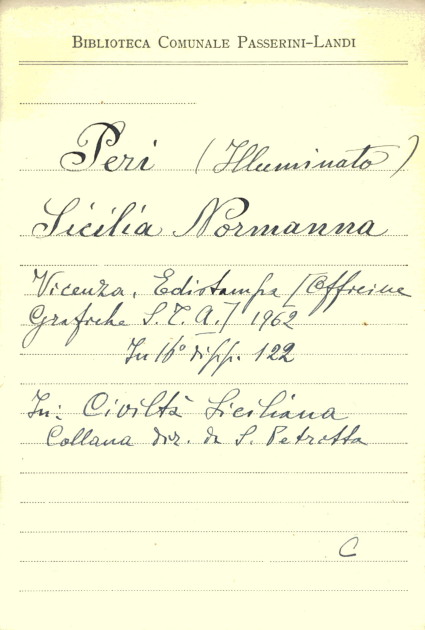 BIBLIOTECA COMUNALE PASSERINI-LANDI
Peri (Illuminato)
Sicilia Normanna
Vicenza, Edistampa [Officine
Grafiche S.T.A.] 1962
In 16° di pp. 122
In: Civiltà Siciliana
Collana dir. da S. Petrotta
C